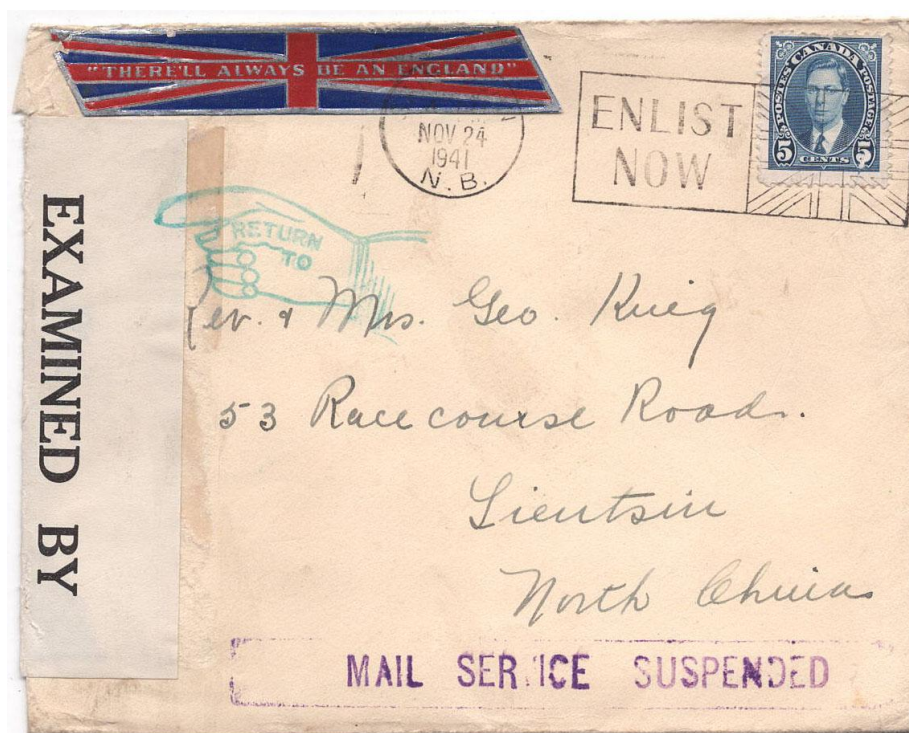 "THERE'LL ALWAYS BE AN ENGLAND"
NOV 24
1941
N.B.
ENLIST
NOW
POSTES CANADA POSTAGE
5 CENTS 5
EXAMINED BY
RETURN
TO
Rev. & Mrs. Geo. Krieg
53 Racecourse Road.
Tientsin
North China
MAIL SERVICE SUSPENDED